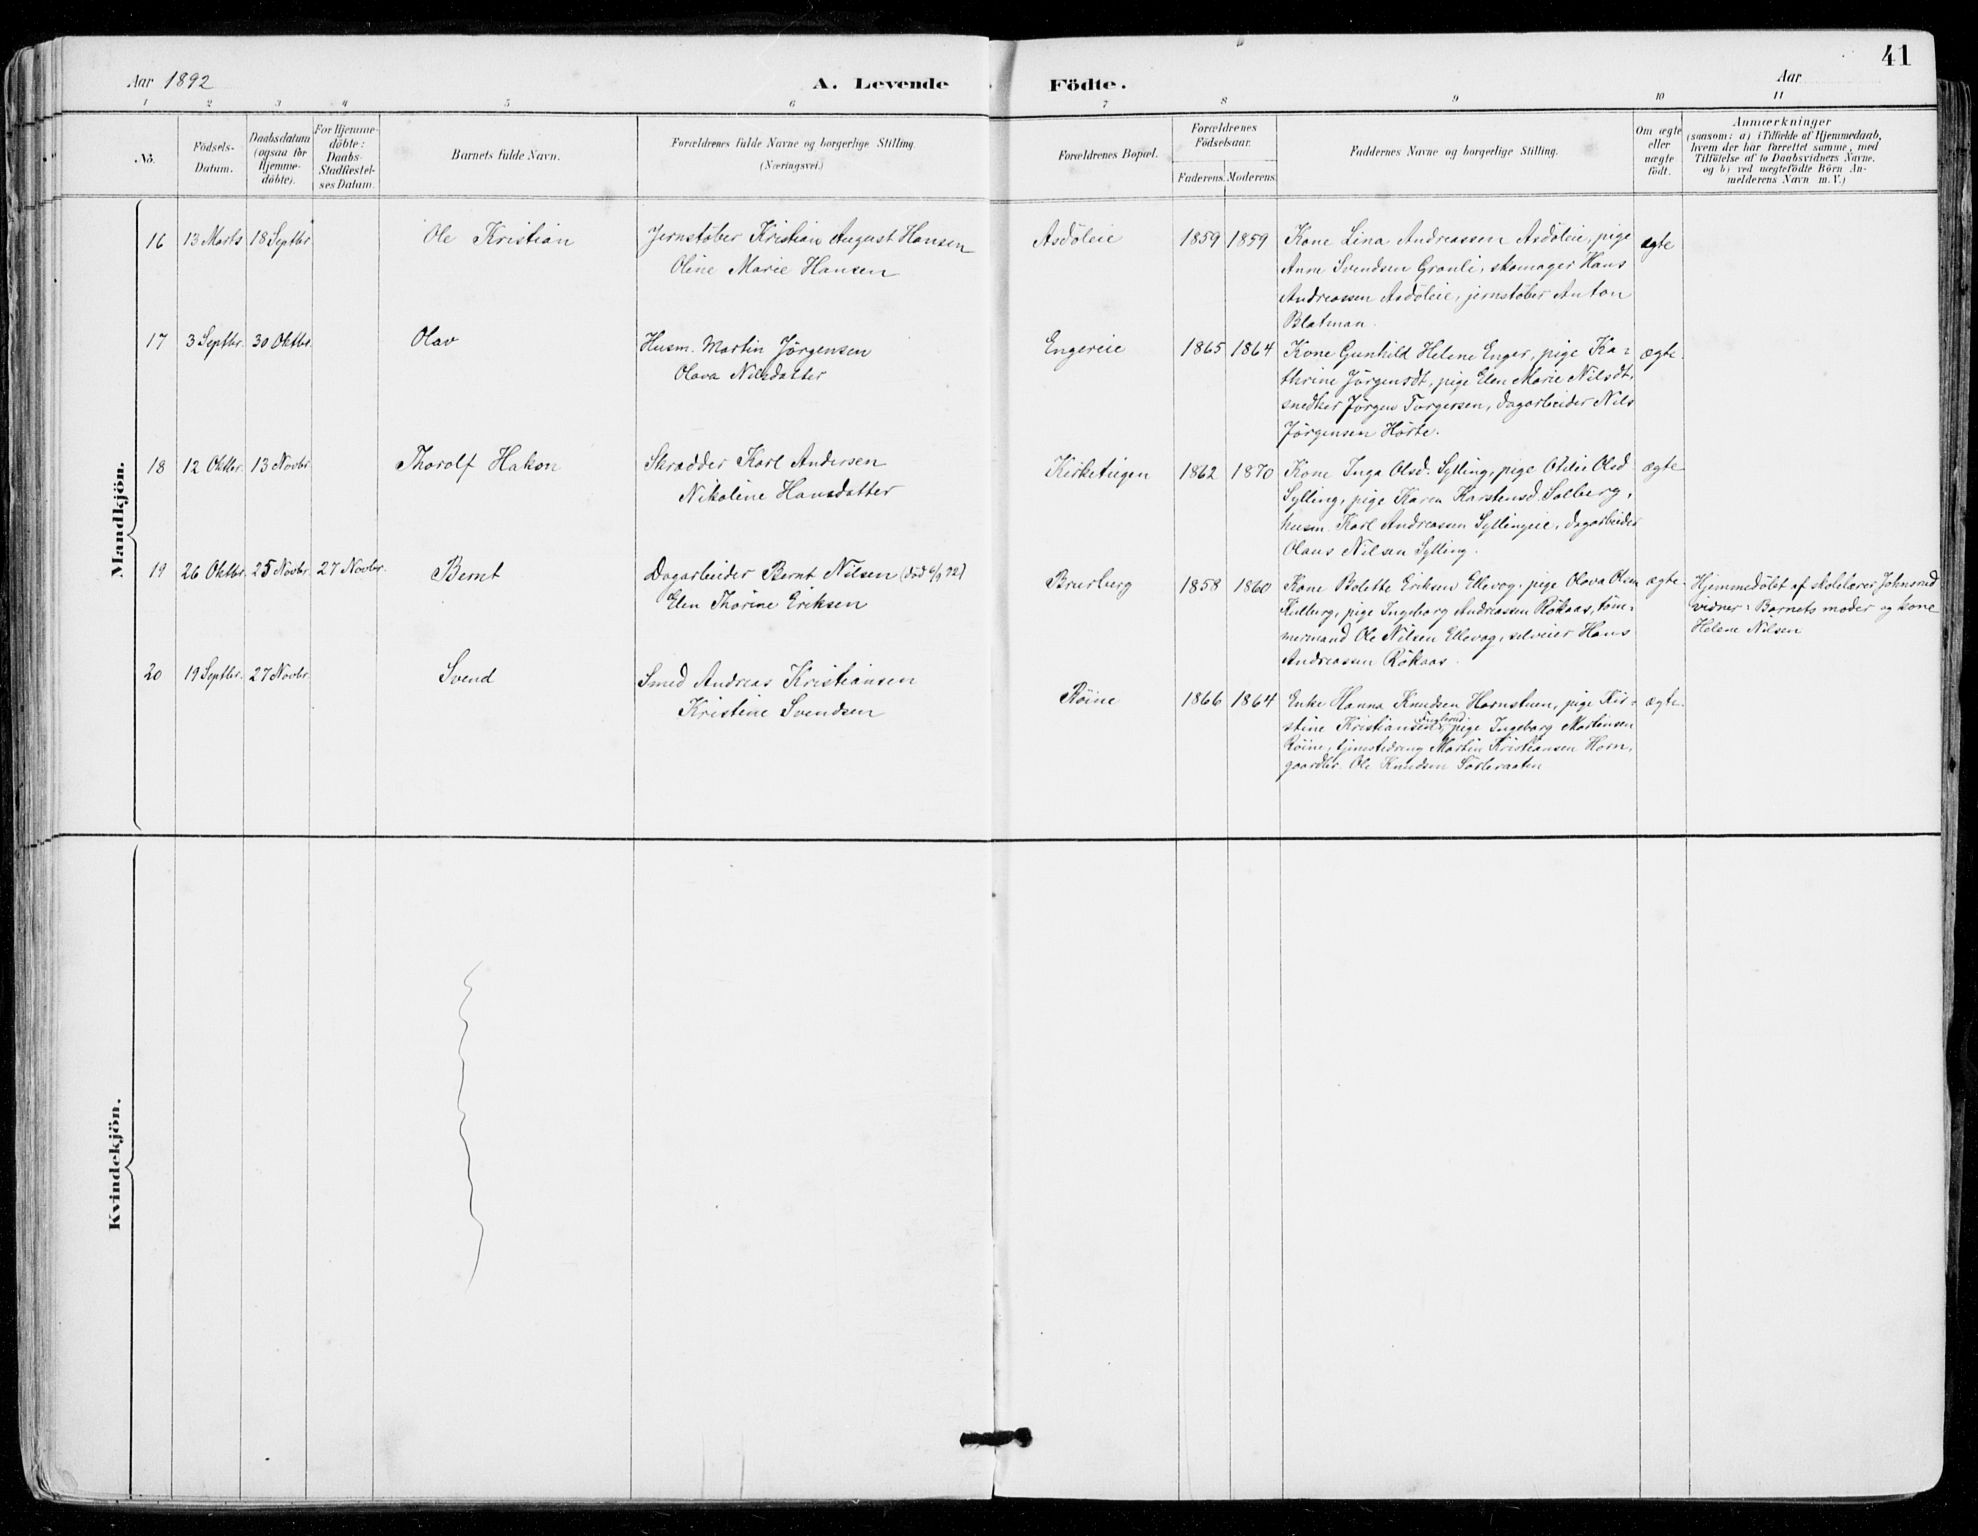 41
Aar 1892
A. Levende Födte.
Aar
1 2 3 4 5 6 7 8 9 10 11
No.
Födsels-
Datum.
Daabsdatum
(ogsaa for
Hjemme-
döbte).
For Hjemme-
döbte:
Daabs-
Stadfæstel-
ses Datum.
Barnets fulde Navn.
Forældrenes fulde Navne og borgerlige Stilling.
(Næringsvei.)
Forældrenes Bopæl.
Forældrenes
Födselsaar.
Faderens. Moderens.
Faddernes Navne og borgerlige Stilling.
Om ægte
eller
uægte
födt.
Anmærkninger
(saasom: a) i Tilfælde af Hjemmedaab,
hvem der har forrettet samme, med
Tilföielse af to Daabsvidners Navne,
og b) ved uægtefödte Börn An-
melderens Navn m. V.)
Mandkjön.
16 13 Marts 18 Septbr Ole Kristian Jernstøber Kristian August Hansen Asdöleie 1859 1859 Kone Lina Andreassen Asdöleie, pige ægte
Oline Marie Hansen Anne Svendsen Granli, skomager Hans
Andreassen Asdöleie, jernstøber Anton
Blatman.
17 3 Septbr. 30 Oktbr. Olav Husm. Martin Jørgensen Engereie 1865 1864 Kone Gunhild Helene Enger, pige Ka- ægte.
Olava Nilsdatter thrine Jørgensdt, pige Elen Marie Nilsdt,
snedker Jørgen Torgersen, dagarbeider Nils
Jørgensen Hörte.
18 12 Oktbr. 13 Novbr. Thorolf Hakon Skrædder Karl Andersen Kirketeigen 1862 1870 Kone Inga Olsd. Sylling, pige Otilie Olsd ægte
Nikoline Hansdatter Sylling, pige Karen Karstensd. Solberg,
husm. Karl Andreassen Syllingeie, dagarbeider
Olaus Nilsen Sylling.
19 26 Oktbr. 25 Novbr. 27 Novbr. Bernt Dagarbeider Bernt Nilsen (död 6/9 92) Bruerberg 1858 1860 Kone Bolette Eriksen Ellevog, pige Olava Olsen ægte. Hjemmedöbt af skolelærer Johnsrud
Elen Thorine Eriksen pige Ingeborg Andreassen Rökaas, töm- vidner: Barnets moder og kone
mermand Ole Nilsen Ellevog, selveier Hans Helene Nilsen
Andreassen Rökaas.
20 19 Septbr. 27 Novbr. Svend Smed Andreas Kristiansen Röine 1866 1864 Enke Hanna Knudsen Hornstuen, pige Kir- ægte.
Kristine Svendsen stine Kristiansen, pige Ingeborg Martinsen
Röine, tjenestedreng Martin Kristiansen Horn,
gaardbr. Ole Knudsen Sørbraaten
Kvindekjön.